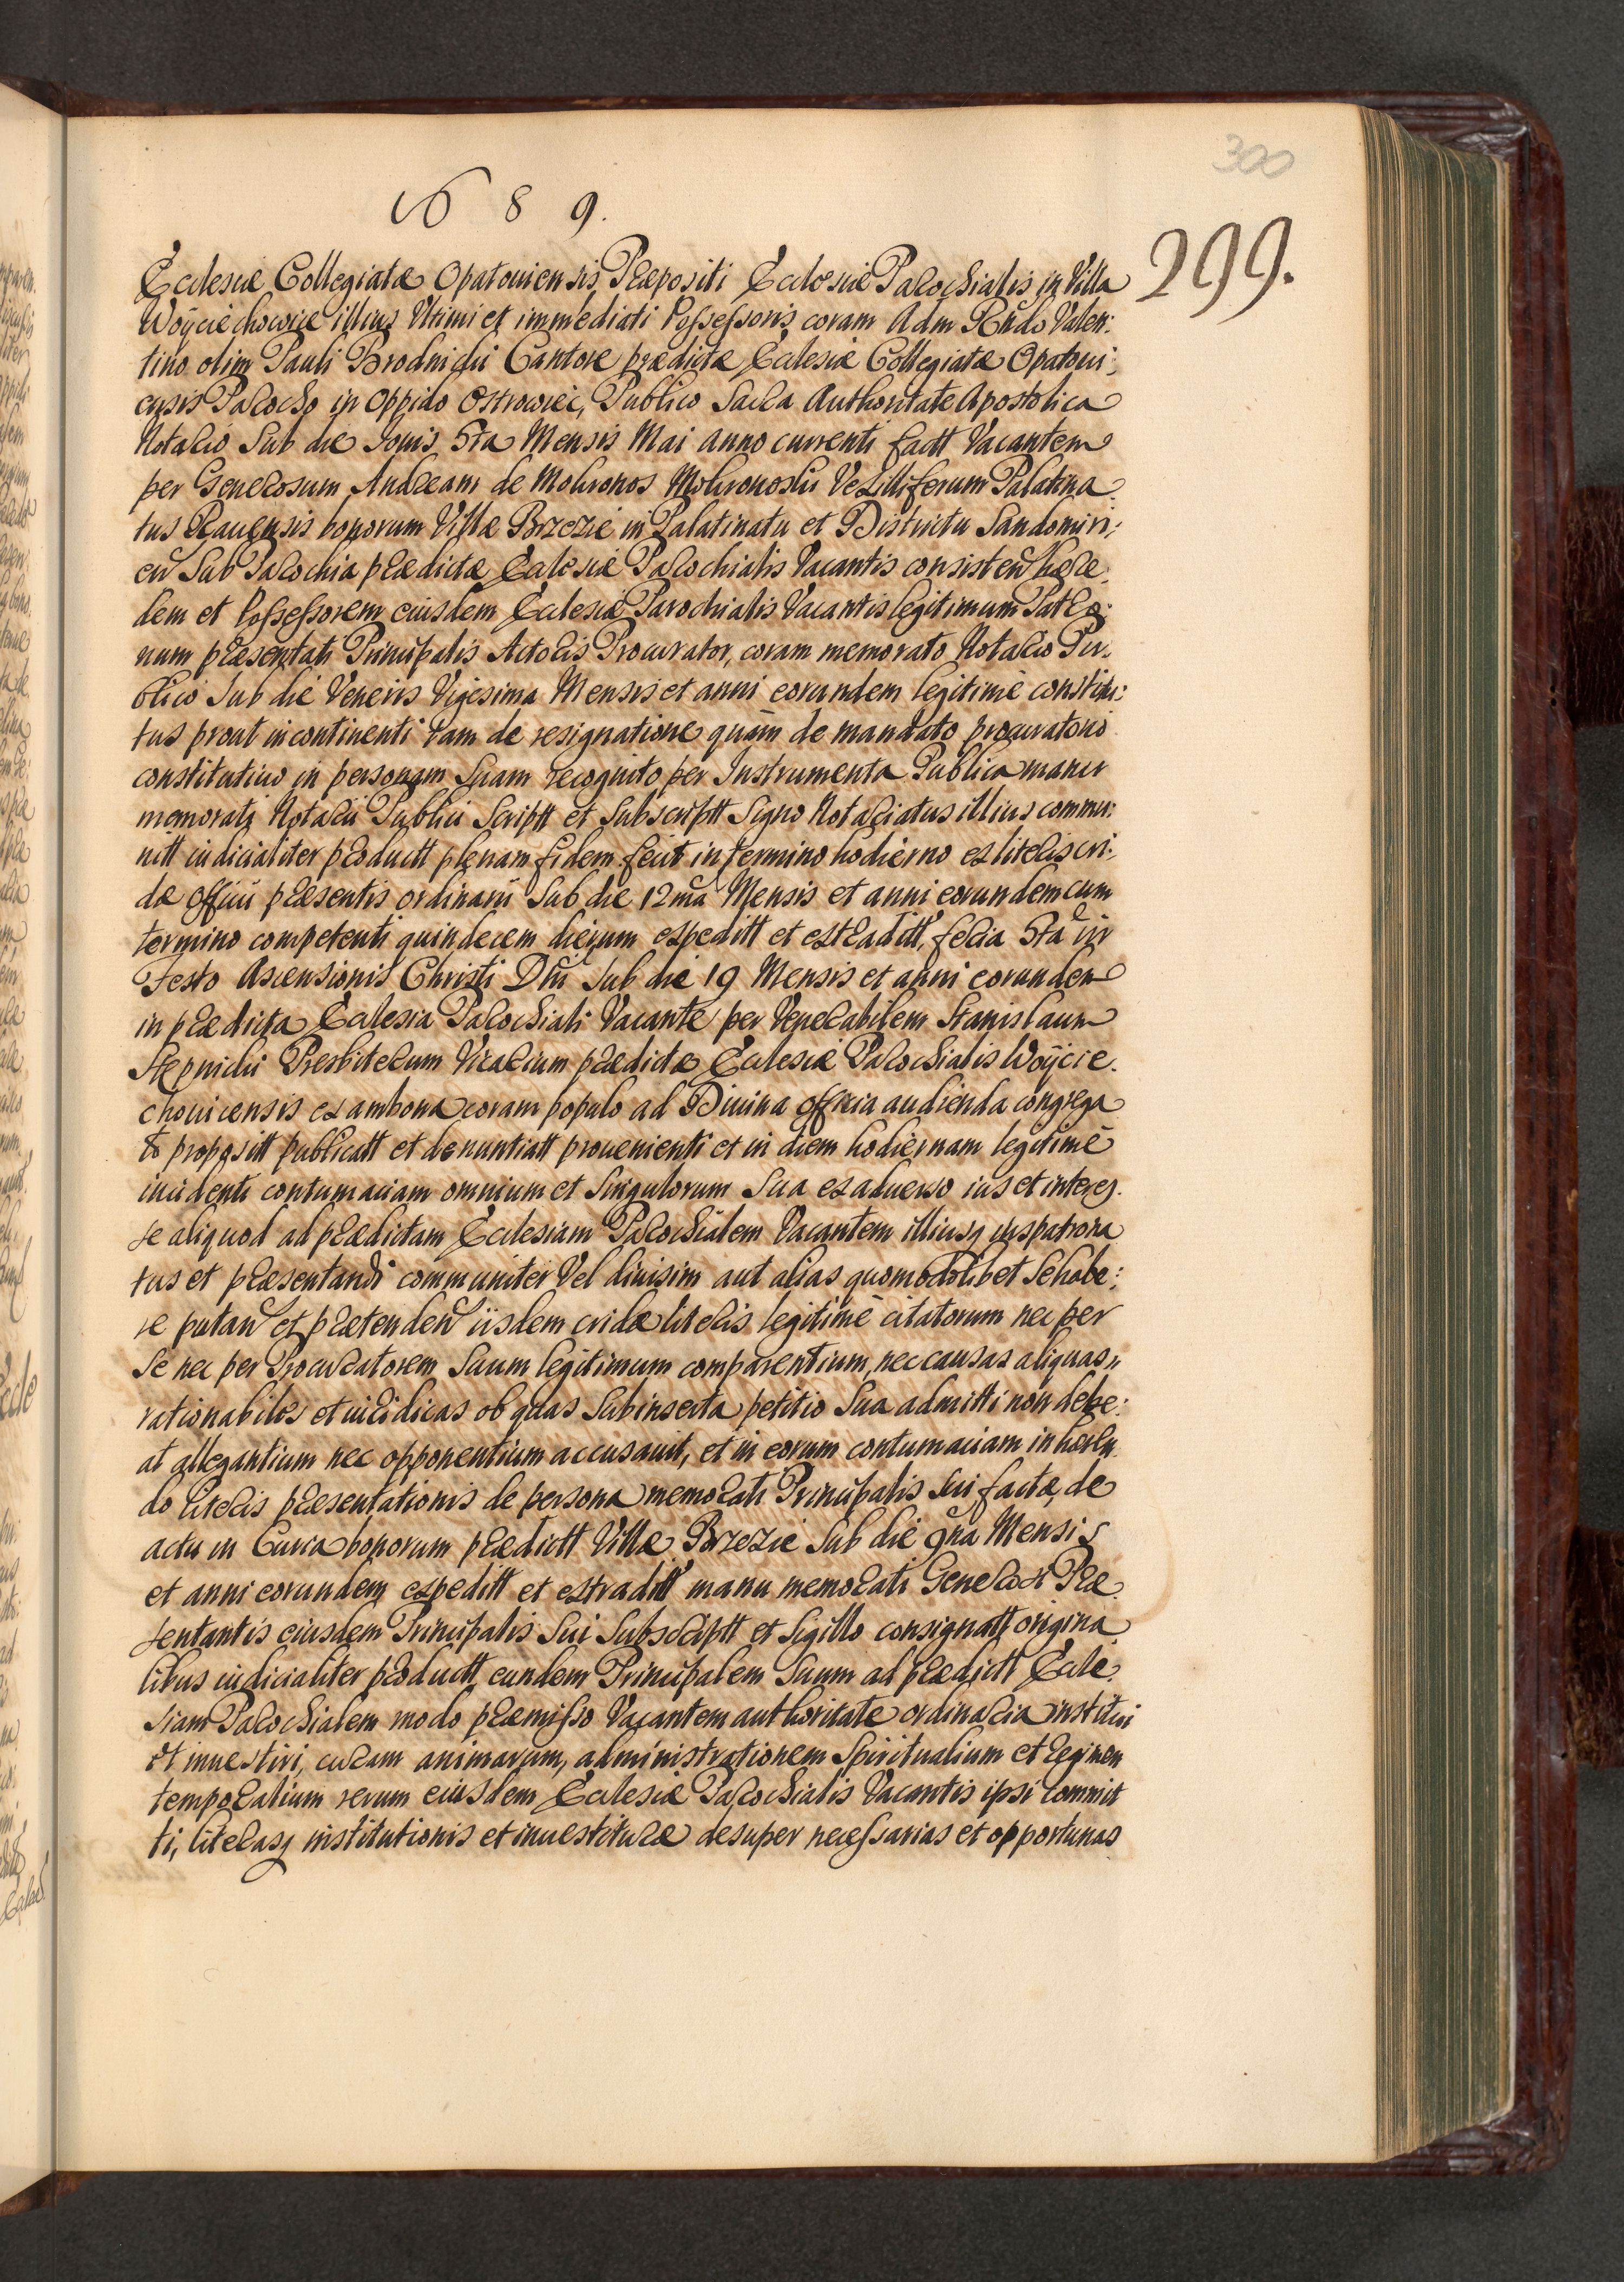 300
1689.
299.
Ecclesiæ Collegiatæ Opatouiensis, Præpositi Ecclesiæ Parochialis in Villa
Woÿciechowice illius Vltimi et immediati Possessoris, coram Adm Rndo Valen:
tino olim Pauli Brodnicki Cantore prædictæ Ecclesiæ Collegiatæ Opatoui:
ensis Parocho in Oppido Ostrowiec, Publico Sacra Authoritate Apostolica
Notario Sub die Jouis 5ta Mensis Mai anno currenti factt Vacantem
per Generosum Andream de Mokronos Mokronoski Vexilliferum Palatina
tus Rauensis bonorum Villæ Brzezie in Palatinatu et Districtu Sandomiri:
en Sub Parochia prædictæ Ecclesiæ Parochialis Vacantis consisten hære
dem et Possessorem eiusdem Ecclesiæ Parochialis Vacantis legitimum Patro:
num præsentati Principalis Actoris Procurator, coram memorato Notario Pu:
blico Sub die Veneris Vigesima Mensis et anni eorundem legitimè constitu:
tus prout incontinenti tam de resignatione quàm de mandato procuratorio
constitutiuo in personam Suam recognito per Instrumenta Publica manu
memorati Notarii Publici Scriptt et Subscriptt Signo Notariatus illius commu:
nitt iudicialiter productt plenam fidem fecit in termino hodierno ex literis cri:
dæ officii præsentis ordinarii Sub die 12ma Mensis et anni eorundem cum
termino competenti quindecem dierum expeditt et extraditt, feria 5ta in
Festo Ascensionis Christi Dni Sub die 19 Mensis et anni eorundem
in prædicta Ecclesia Parochiali Vacante per Venerabilem Stanislaum
Stepnicki Presbiterum Vicarium prædictæ Ecclesiæ Parochialis Woÿcie
chouicensis ex ambona coram populo ad Diuina officia audienda congrega
to propositt publicatt et denuntiatt prouenienti et in diem hodiernam legitimè
incidenti contumaciam omnium et Singulorum Sua ex aduerso ius et interes
se aliquod ad prædictam Ecclesiam Parochialem Vacantem illiusq iuspatrona
tus et præsentandi communiter Vel diuisim aut alias quomodolibet Se habe:
re putan et prætenden iisdem cridæ literis legitimè citatorum nec per
Se nec per Procuratorem Suum legitimum comparentium, nec causas aliquas
rationabiles et iuridicas ob quas Subinserta petitio Sua admitti non debe:
at allegantium nec opponentium accusauit, et in eorum contumaciam inhæren
do literis præsentationis de persona memorati Principalis Sui factæ, de
actu in Curia bonorum prædictt Villæ Brzezie Sub die 9na Mensis
et anni eorundem expeditt et extraditt manu memorati Generosi Præ
sentantis eiusdem Principalis Sui Subscriptt et Sigillo consignatt origina
libus iudicialiter productt, eundem Principalem Suum ad prædictt Eccle
siam Parochialem modo præmisso Vacantem authoritate ordinaria institui
et inuestiri, curam animarum, administrationem Spiritualium et regimen
temporalium rerum eiusdem Ecclesiæ Parochialis Vacantis ipsi commit
ti, literasq institutionis et inuestituræ desuper necessarias et opportunas